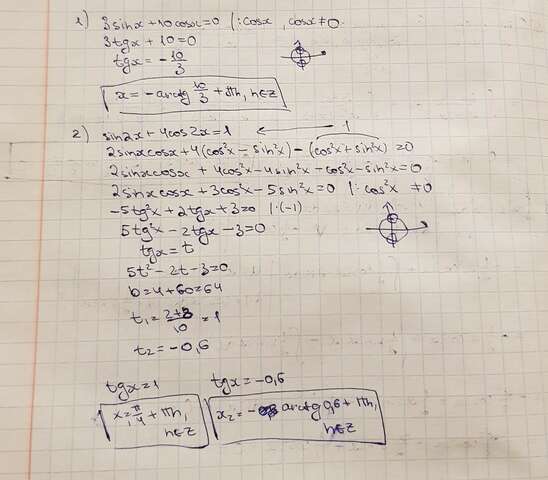 1) 3sinx+10cosx=0 |:cosx, cosx≠0
3tgx+10=0
tgx=-10/3
x=-arctg 10/3 +πn, n∈Z
2) sin2x+4cos2x=1
1
2sinxcosx+4(cos²x-sin²x)-(cos²x+sin²x)=0
2sinxcosx+4cos²x-4sin²x-cos²x-sin²x=0
2sinxcosx+3cos²x-5sin²x=0 |:cos²x ≠0
-5tg²x+2tgx+3=0 |·(-1)
5tg²x-2tgx-3=0
tgx=t
5t²-2t-3=0
D=4+60=64
t₁=2+8/10=1
t₂=-0,6
tgx=1 tgx=-0,6
x₁=π/4+πn, n∈Z
x₂=-arctg 0,6+πn, n∈Z